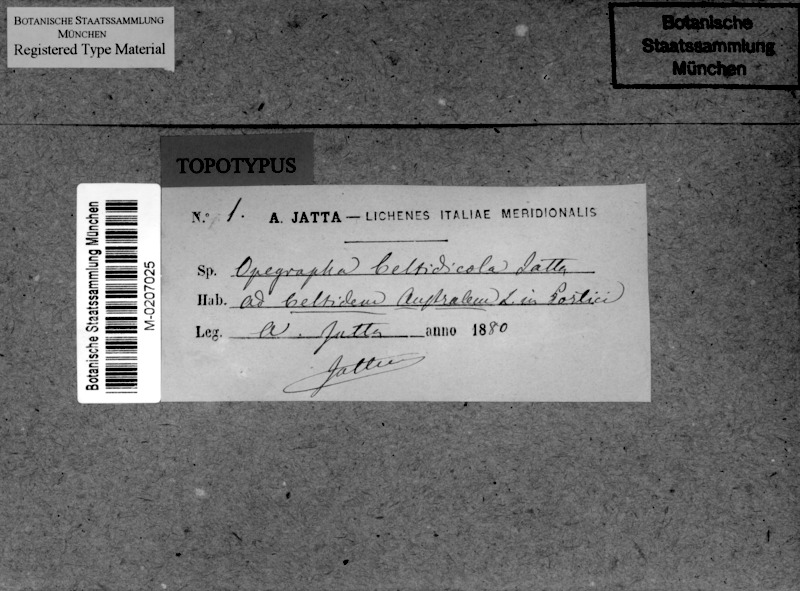 BOTANISCHE STAATSSAMMLUNG
MÜNCHEN
Registered Type Material
Botanische
Staatssammlung
München
TOPOTYPUS
Botanische Staatssammlung München
M-0207025
N.º 1. A. JATTA — LICHENES ITALIAE MERIDIONALIS
Sp. Opegrapha Celtidicola Jatta
Hab. ad Celtidem Australem L in Portici
Leg. A. Jatta anno 1880
Jatta